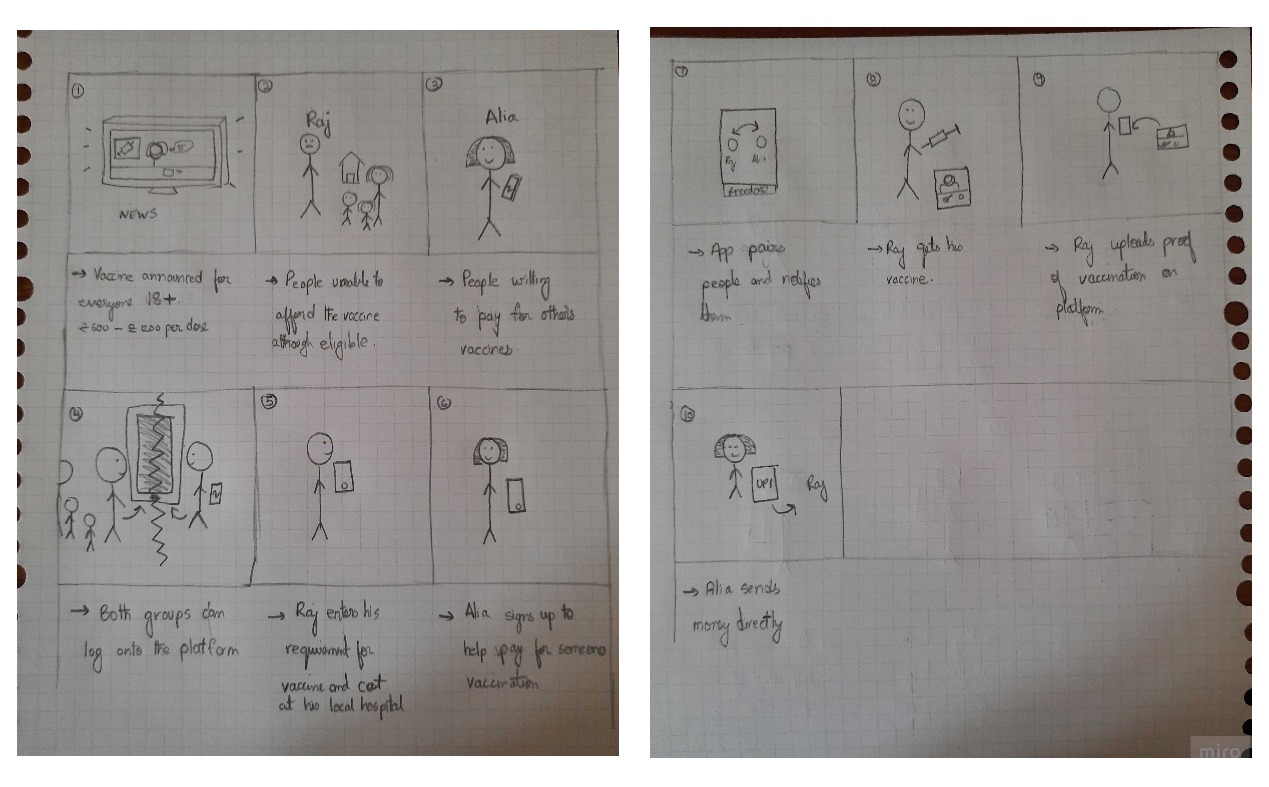 ①
NEWS
→ Vaccine announced for
everyone 18+.
₹600 – ₹1200 per dose
②
Raj
→ People unable to
afford the vaccine
although eligible.
③
Alia
→ People willing
to pay for others
vaccines
④
→ Both groups can
log onto the platform
⑤
→ Raj enters his
requirement for
vaccine and cost
at his local hospital
⑥
→ Alia signs up to
help pay for someones
vaccination
⑦
Raj Alia
→ App pairs
people and notifies
them
⑧
→ Raj gets his
vaccine.
⑨
→ Raj uploads proof
of vaccination on
platform.
⑩
UPI
Raj
→ Alia sends
money directly
miro